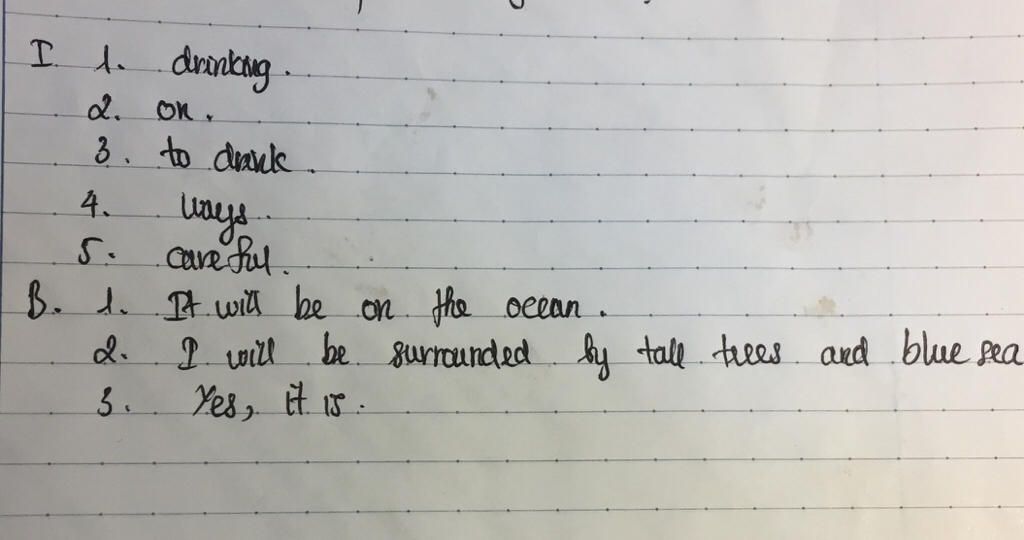 I. 1. drinking.
2. on.
3. to drink.
4. ways.
5. careful.
B. 1. It will be on the ocean.
2. I will be surrounded by tall trees and blue sea
3. Yes, it is.